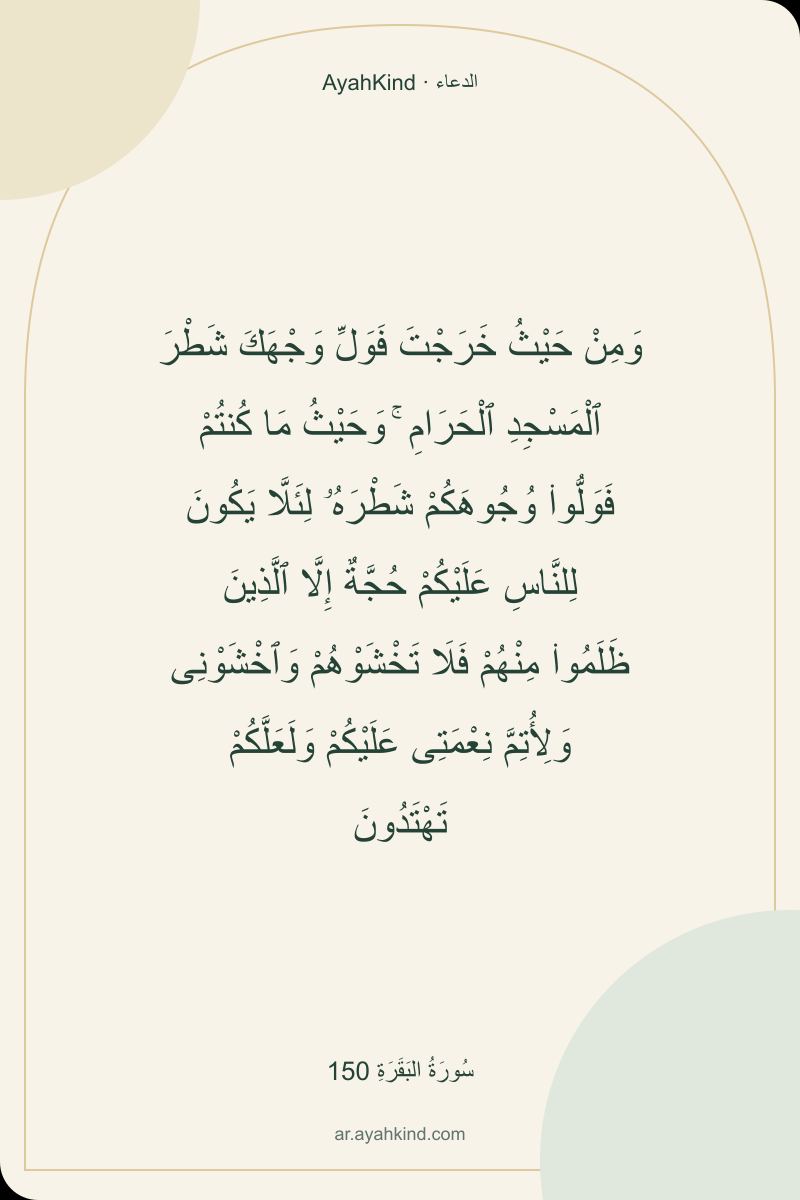 AyahKind · الدعاء
وَمِنْ حَيْثُ خَرَجْتَ فَوَلِّ وَجْهَكَ شَطْرَ
ٱلْمَسْجِدِ ٱلْحَرَامِ ۚ وَحَيْثُ مَا كُنتُمْ
فَوَلُّوا۟ وُجُوهَكُمْ شَطْرَهُۥ لِئَلَّا يَكُونَ
لِلنَّاسِ عَلَيْكُمْ حُجَّةٌ إِلَّا ٱلَّذِينَ
ظَلَمُوا۟ مِنْهُمْ فَلَا تَخْشَوْهُمْ وَٱخْشَوْنِى
وَلِأُتِمَّ نِعْمَتِى عَلَيْكُمْ وَلَعَلَّكُمْ
تَهْتَدُونَ
سُورَةُ البَقَرَةِ 150
ar.ayahkind.com